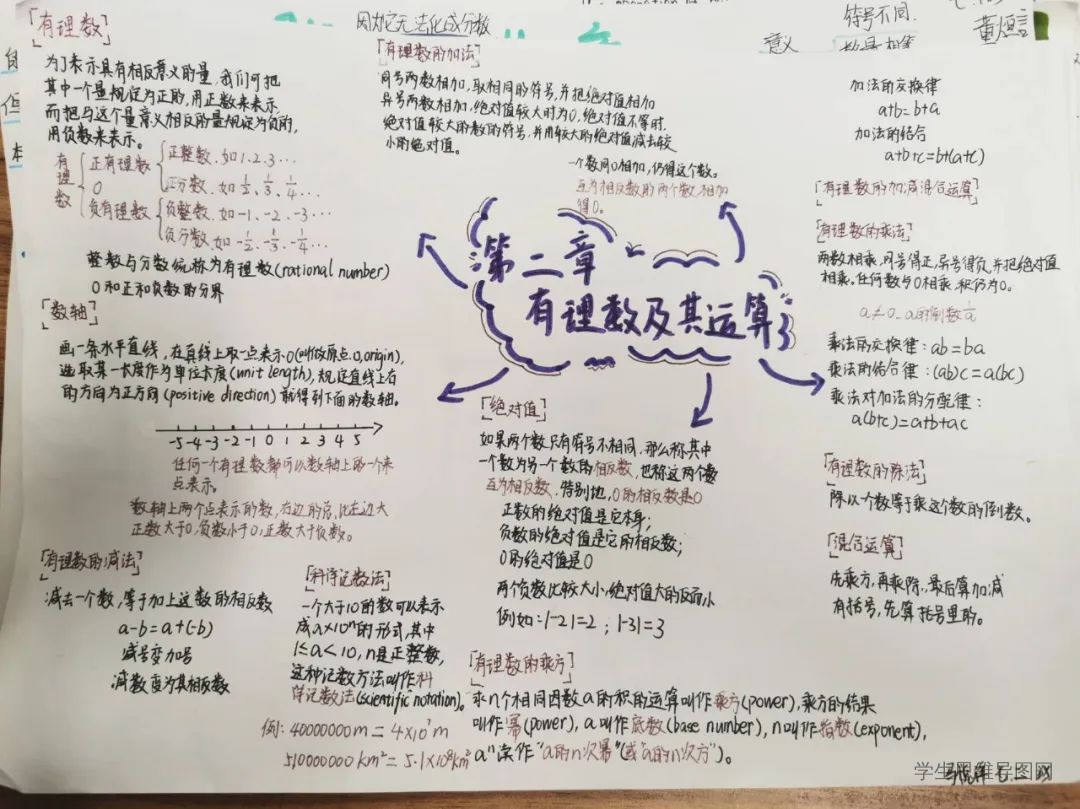 因为它无法化成分数
意义
符号不同.
「有理数」
为了表示具有相反意义的量，我们可把
其中一个量规定为正的，用正数来表示
而把与这个量意义相反的量规定为负的，
用负数来表示。
有理数
正有理数
正整数.如1.2.3…
正分数.如1/2、1/3、1/4…
0
负有理数
负整数.如-1、-2、-3…
负分数.如-1/2、-1/3、-1/4…
整数与分数统称为有理数(rational number)
0和正和负数的分界
「数轴」
画一条水平直线，在真线上取一点表示0(叫做原点0,origin),
选取某一长度作为单位长度(unit length)，规定直线上右
的方向为正方向(positive direction)就得到下面的数轴。
-5 -4 -3 -2 -1 0 1 2 3 4 5
任何一个有理数都可以数轴上的一个来
点表示。
数轴上两个点表示的数，右边的总比左边大
正数大于0,负数小于0,正数大于负数。
「有理数的减法」
减去一个数，等于加上这数的相反数
a-b=a+(-b)
减号变加号
减数变为其相反数
「科学记数法」
一个大于10的数可以表示
成a×10ⁿ的形式,其中
1≤a<10,n是正整数,
这种记数方法叫作科
学记数法(scientific notation)。
例: 40000000m=4×10⁷m
510000000km²=5.1×10⁸km²
「有理数的加法」
同号两数相加，取相同的符号，并把绝对值相加
异号两数相加，绝对值较大时为0，绝对值不等时.
绝对值较大的数的符号，并用较大的绝对值减去较
小的绝对值。
一个数同0相加，仍得这个数。
互为相反数的两个数，相加
得0。
第二章
有理数及其运算
「绝对值」
如果两个数只有符号不相同，那么称其中
一个数为另一个数的相反数，也称这两个数
互为相反数，特别地，0的相反数是0
正数的绝对值是它本身;
负数的绝对值是它的相反数;
0的绝对值是0
两个负数比较大小,绝对值大的反而小
例如:|-2|=2;|-3|=3
「有理数的乘方」
求n个相同因数a的积的运算叫作乘方(power),乘方的结果
叫作幂(power), a叫作底数(base number), n叫作指数(exponent),
aⁿ读作“a的n次幂”(或“a的n次方”)。
加法的交换律
a+b=b+a
加法的结合
a+b+c=b+(a+c)
「有理数的加减混合运算」
「有理数的乘法」
两数相乘，同号得正，异号得负，并把绝对值
相乘。任何数与0相乘，积仍为0。
a≠0 a的倒数1/a
乘法的交换律:ab=ba
乘法的结合律:(ab)c=a(bc)
乘法对加法的分配律:
a(b+c)=a+b+ac
「有理数的除法」
除以个数等于乘这个数的倒数。
「混合运算」
先乘方，再乘除，最后算加减
有括号，先算括号里的。
学生思维导图网